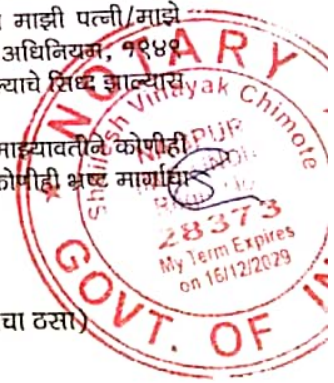 माझी पत्नी/माझे
अधिनियम, १९४९
ल्याचे सिध्द झाल्यास
माझ्यावतीने कोणीही
कोणीही भ्रष्ट मार्गाचा
चा ठसा)
NOTARY
Vinayak Chimote
NAGPUR
28373
My Term Expires
on 16/12/2029
GOVT. OF IN